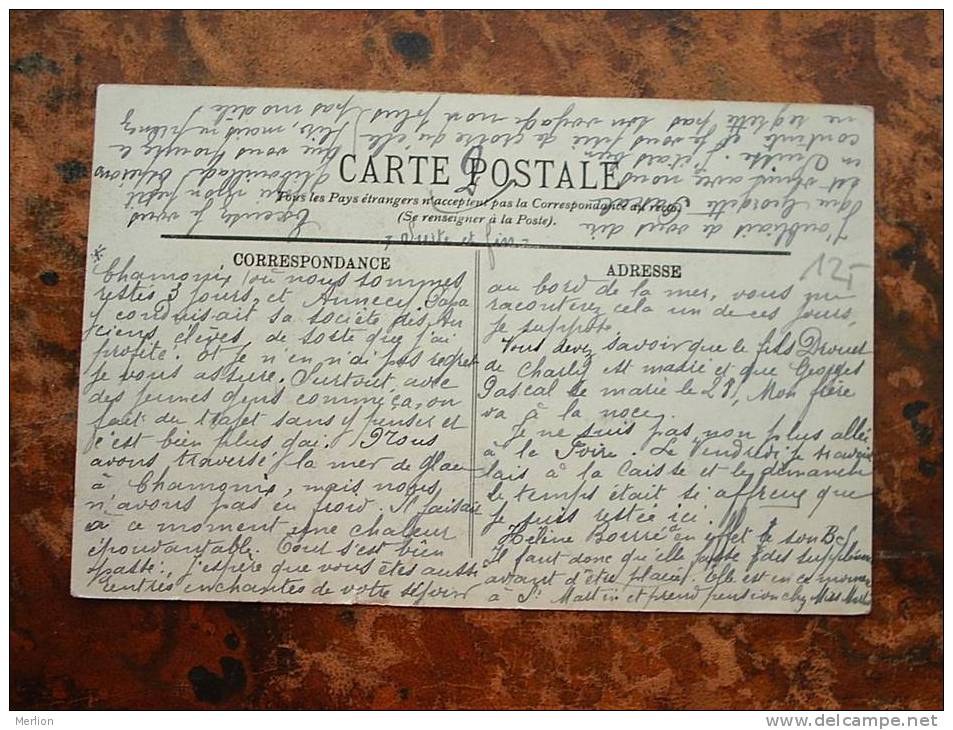 CARTE POSTALE
Tous les Pays étrangers n'acceptent pas la Correspondance au recto.
(Se renseigner à la Poste).
Suite et fin
CORRESPONDANCE
Chamonix où nous sommes
restés 3 jours, et Annecy. Papa
y conduisait sa société des An
ciens élèves, de sorte que j'ai
profité. Et je n'en n'ai pas regret
je vous assure. Surtout avec
des jeunes gens comme ça, on
fait du trajet sans y penser et
c'est bien plus gai. Nous
avons traversé la mer de Glace
à Chamonix, mais nous
n'avons pas eu froid. Il faisait
à ce moment une chaleur
épouvantable. Tout s'est bien
passé. J'espère que vous êtes aussi
rentrés enchantés de votre séjour
ADRESSE
125
au bord de la mer, vous me
raconterez cela un de ces jours,
je suppose.
Vous devez savoir que le fils Drouet
de Charly est marié et que Georges
Pascal se marie le 28, Mon frère
va à la noce.
Je ne suis pas non plus allée
à la Foire. Le Vendredi je travail
lais à la Caisse et le dimanche
le temps était si affreux que
je suis restée ici.
Hélène a en effet son
Il faut donc qu'elle fasse des
avant d'être placée. Elle est en ce moment
à St Martin et prend pension chez
J'oubliais de vous dire
que Georgette
est venue avec nous
en Suisse. J'étais bien
contente et je vous prie de croire qu'elle
ne regrette pas son voyage non plus
pas modèle!
Merlion
www.delcampe.net